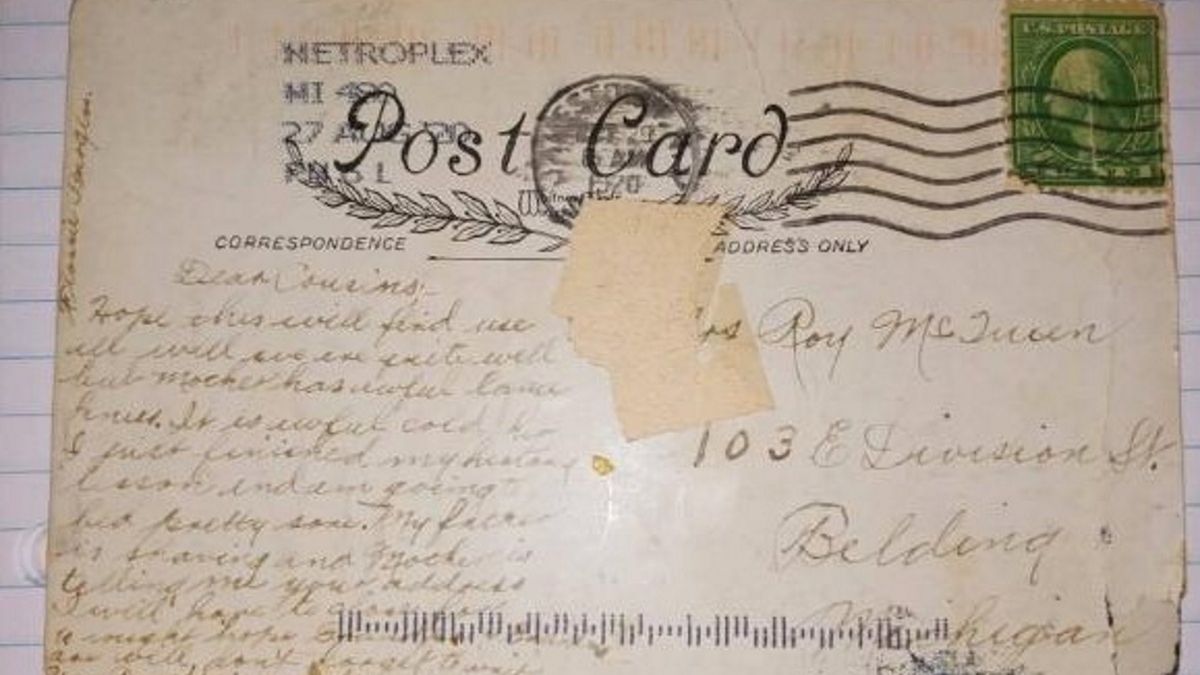 U.S. POSTAGE
METROPLEX
MI 480
27 AUG '20
PM 5 L
Post Card
1920
CORRESPONDENCE
ADDRESS ONLY
Dear Cousins,
Hope this will find use
all well we are quite well
but Mother has awful lame
knees. It is awful cold
I just finished my history
lesson and am going
bed pretty soon. My father
is shaving and Mother is
telling me your address
I will hope to
might hope
are well, don't forget to
Roy McQueen
103 E Division St.
Belding
Michigan